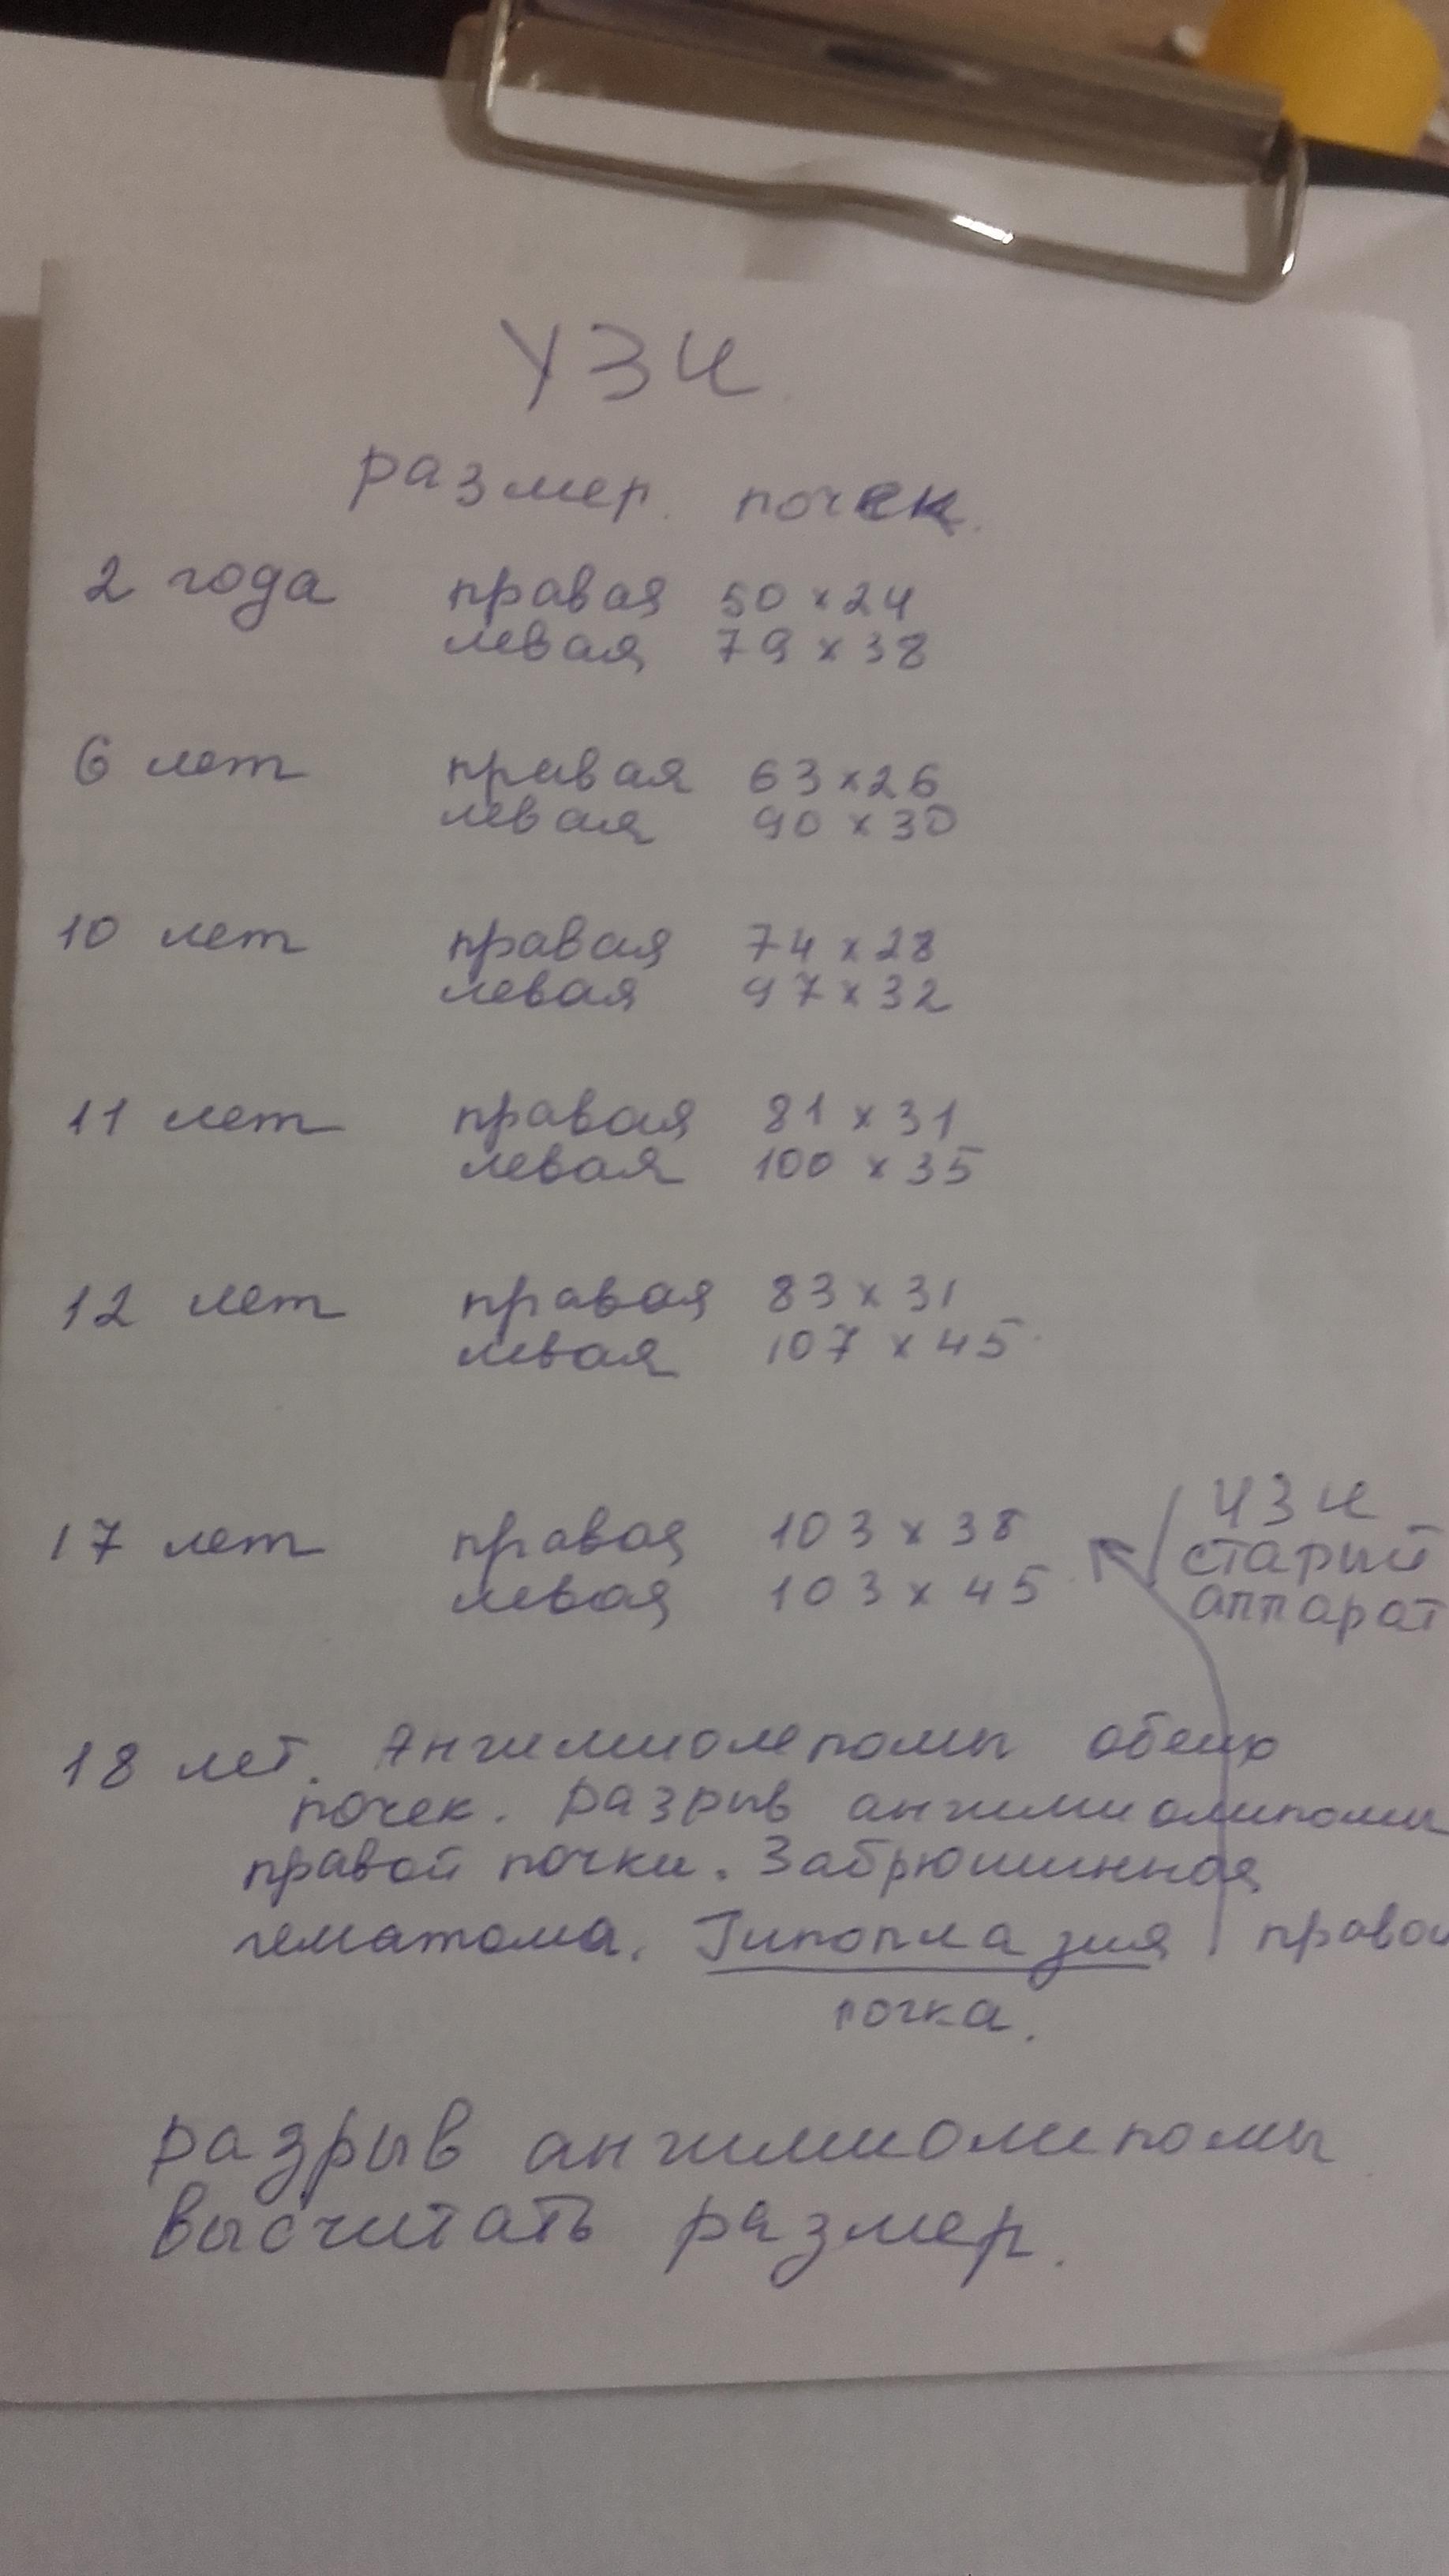 УЗИ
размер. почек.
2 года правая 50 x 24
левая 79 x 38
6 лет правая 63 x 26
левая 90 x 30
10 лет правая 74 x 28
левая 97 x 32
11 лет правая 81 x 31
левая 100 x 35
12 лет правая 83 x 31
левая 107 x 45
17 лет правая 103 x 38
левая 103 x 45
УЗИ
старый
аппарат
18 лет. Ангимиолепомы обеих
почек. Разрыв ангимиолипомы
правой почки. Забрюшинная
гематома. Гипоплазия правой
почка.
разрыв ангимиолипомы
высчитать размер.